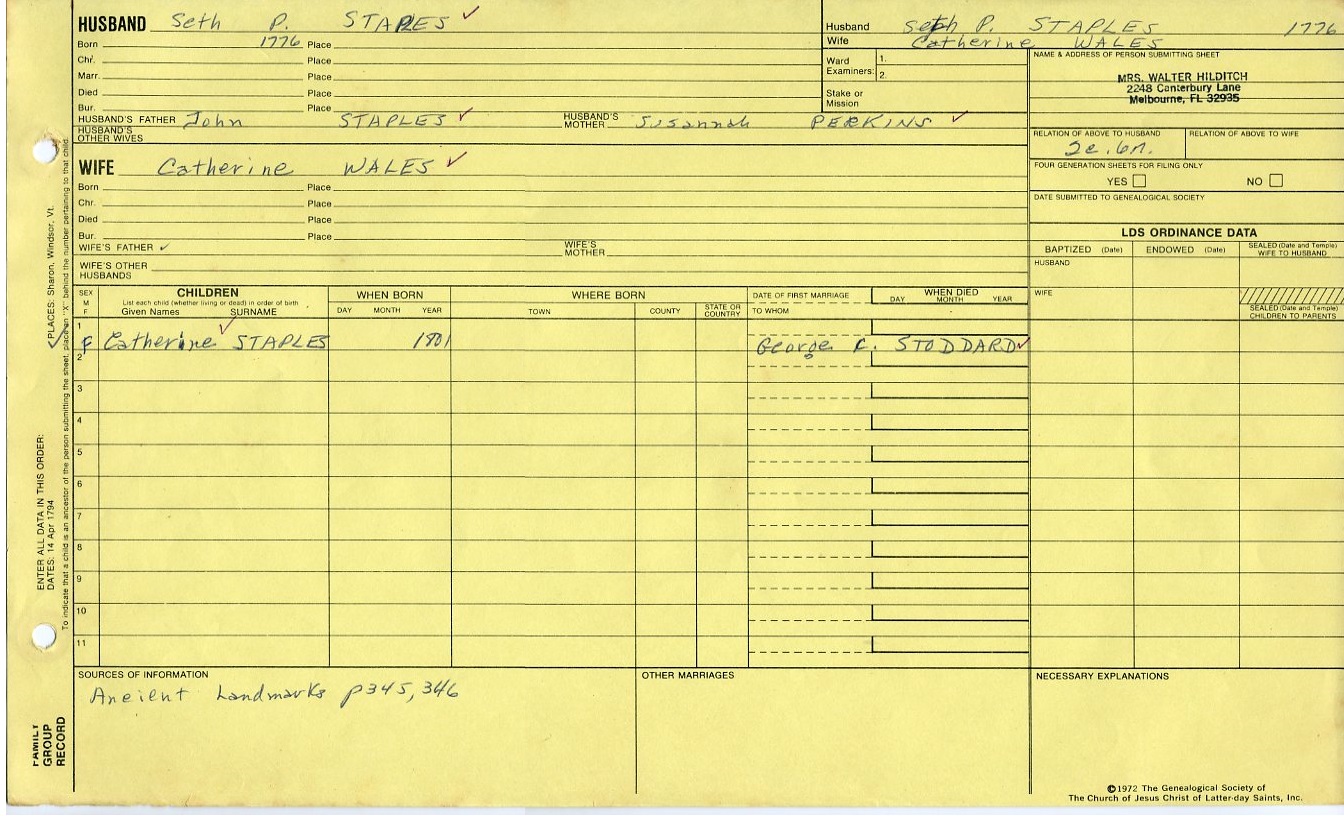 HUSBAND Seth P. STAPLES ✓
Born 1776 Place
Chr. Place
Marr. Place
Died Place
Bur. Place
HUSBAND'S FATHER John STAPLES ✓ HUSBAND'S MOTHER Susannah PERKINS ✓
HUSBAND'S OTHER WIVES
Husband Seth P. STAPLES 1776
Wife Catherine WALES
Ward Examiners: 1.
2.
Stake or Mission
NAME & ADDRESS OF PERSON SUBMITTING SHEET
MRS. WALTER HILDITCH
2248 Canterbury Lane
Melbourne, FL 32935
RELATION OF ABOVE TO HUSBAND RELATION OF ABOVE TO WIFE
2c. 6r.
FOUR GENERATION SHEETS FOR FILING ONLY
YES NO
DATE SUBMITTED TO GENEALOGICAL SOCIETY
WIFE Catherine WALES ✓
Born Place
Chr. Place
Died Place
Bur. Place
WIFE'S FATHER ✓ WIFE'S MOTHER
WIFE'S OTHER HUSBANDS
LDS ORDINANCE DATA
BAPTIZED (Date) ENDOWED (Date) SEALED (Date and Temple) WIFE TO HUSBAND
HUSBAND
WIFE
SEALED (Date and Temple) CHILDREN TO PARENTS
SEX M F
CHILDREN
List each child (whether living or dead) in order of birth
Given Names SURNAME
WHEN BORN
DAY MONTH YEAR
WHERE BORN
TOWN COUNTY STATE OR COUNTRY
DATE OF FIRST MARRIAGE
TO WHOM
WHEN DIED
DAY MONTH YEAR
1
F Catherine ✓ STAPLES 1801 George C. STODDARD ✓
2
3
4
5
6
7
8
9
10
11
SOURCES OF INFORMATION
Aneient Landmarks p345, 346
OTHER MARRIAGES
NECESSARY EXPLANATIONS
©1972 The Genealogical Society of
The Church of Jesus Christ of Latter-day Saints, Inc.
FAMILY
GROUP
RECORD
ENTER ALL DATA IN THIS ORDER:
DATES: 14 Apr 1794
✓ PLACES: Sharon, Windsor, Vt.
To indicate that a child is an ancestor of the person submitting the sheet, place an "X" behind the number pertaining to that child.